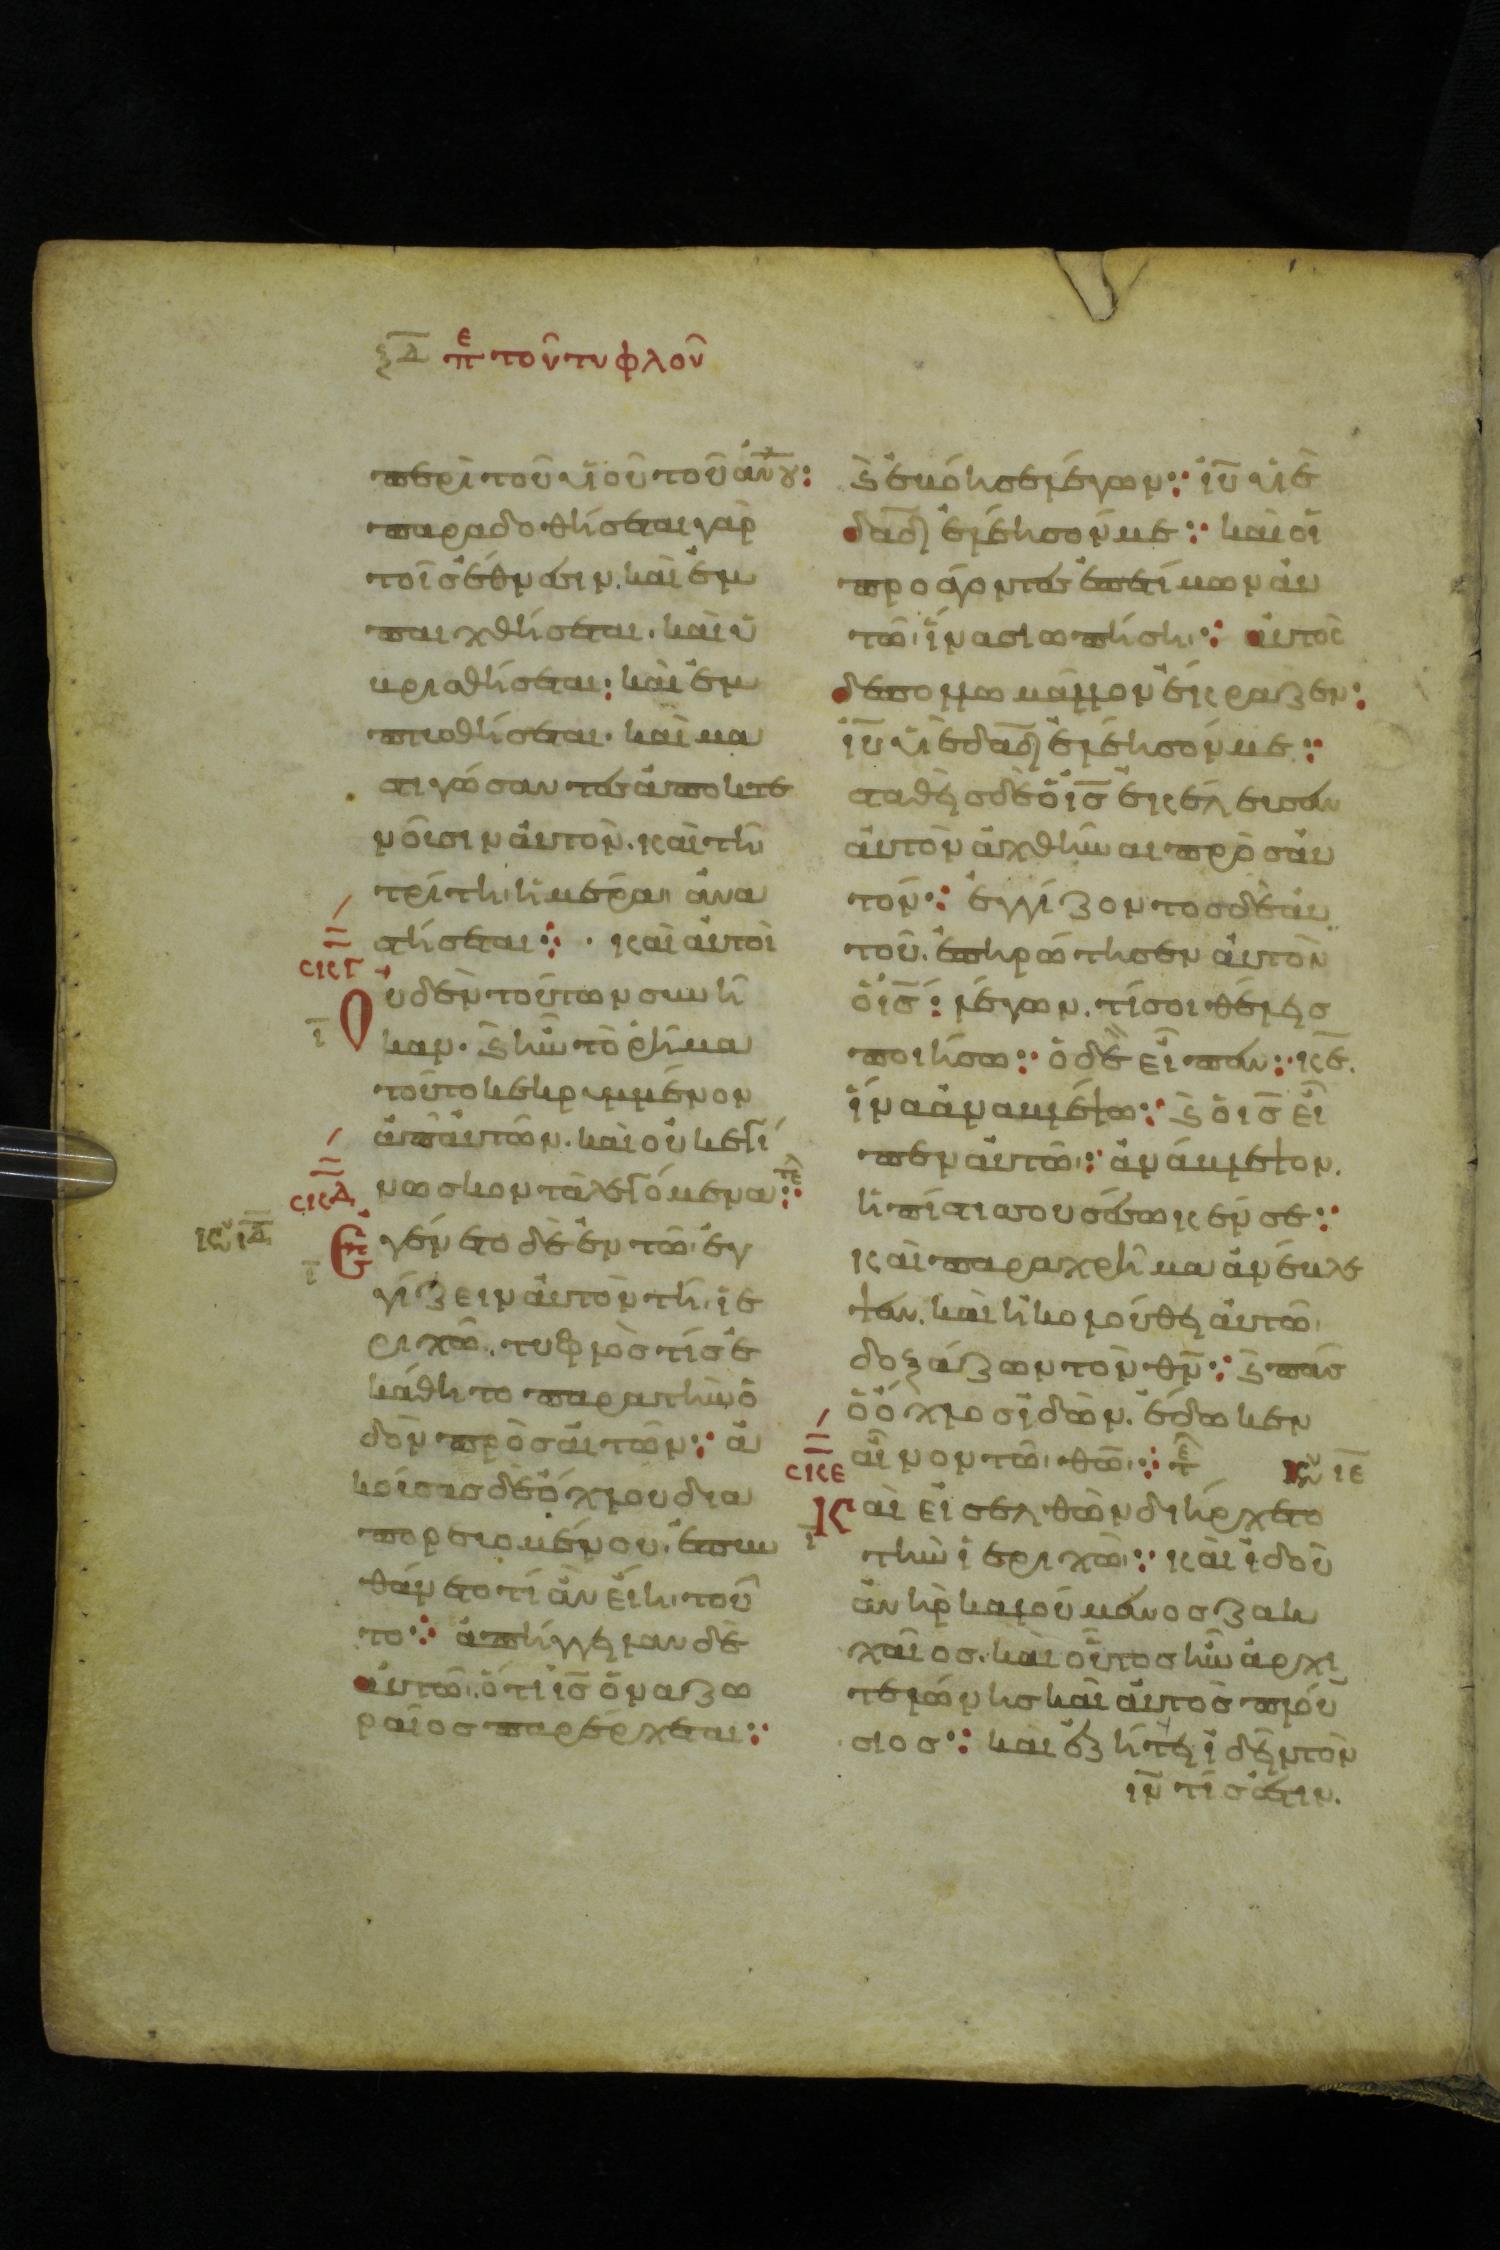 ξδ πε τοῦ τυφλοῦ
περὶ τοῦ υἱοῦ τοῦ ἀνου:
παραδοθήσεται γὰρ
τοῖς ἔθνεσιν. καὶ ἐμ
παιχθήσεται. καὶ ὑ
βρισθήσεται: καὶ ἐμ
πτυσθήσεται. καὶ μα
στιγώσαντες ἀποκτε
νοῦσιν αὐτὸν. καὶ τῆ
τρίτη ἡμέρα ἀνα
στήσεται: · καὶ αὐτοὶ
σκγ
ι
Οὐδὲν τούτων συνῆ
καν. καὶ ἦν τὸ ῥῆμα
τοῦτο κεκρυμμένον
ἀπ' αὐτῶν. καὶ οὐκ ἐγί
νωσκον τὰ λεγόμενα: τε
σκδ
κυ ιδ
ι
Ἐγένετο δὲ ἐν τῶ ἐγ
γίζειν αὐτὸν τῆ ἰε
ριχῶ. τυφλὸς τίς ἐ
κάθητο παρα τὴν ὁ
δὸν προσαιτῶν: ἀ
κούσας δὲ ὄχλου δια
πορευομένου. ἐπυν
θάνετο τί ἂν εἴη τοῦ
το: ἀπήγγειλαν δὲ
αὐτῶ. ὅτι ις ὁ ναζω
ραῖος παρέρχεται:
καὶ ἐβόησε λέγων: ιυ υἱὲ
δαδ ἐλέησόν με: καὶ οἱ
προάγοντες ἐπετίμων αὐ
τῶ ἵνα σιωπήση: αὐτὸς
δὲ πολλῶ μᾶλλον ἔκραζεν:
ιυ υἱὲ δαδ ἐλέησόν με:
σταθεὶς δὲ ὁ ις ἐκέλευσεν
αὐτὸν ἀχθῆναι πρὸς αὐ
τόν: ἐγγίζοντος δὲ αὐ
τοῦ. ἐπηρώτησεν αὐτὸν
ὁ ις: λέγων. τί σοι θέλεις
ποιήσω: ὁ δὲ εἶπεν: κε.
ἵνα ἀναβλέψω: καὶ ὁ ις εἶ
πεν αὐτῶ: ἀνάβλεψον.
ἡ πίστις σου σέσωκέν σε:
καὶ παραχρῆμα ἀνέβλε
ψεν. καὶ ἠκολούθει αὐτῶ
δοξάζων τὸν θν: καὶ πᾶς
ὁ ὄχλος ἰδὼν. ἔδωκεν
αἶνον τῶ θω: τε
κυ ιε
σκε
ι
Καὶ εἰσελθὼν διήρχετο
τὴν ἱεριχῶ: καὶ ἰδοὺ
ἀνὴρ καλούμενος ζακ
χαῖος. καὶ οὗτος ἦν ἀρχι
τελώνης καὶ αὐτὸς πλού
σιος: καὶ ἐζήτει ἰδεῖν τὸν
ιν τίς ἐστιν.